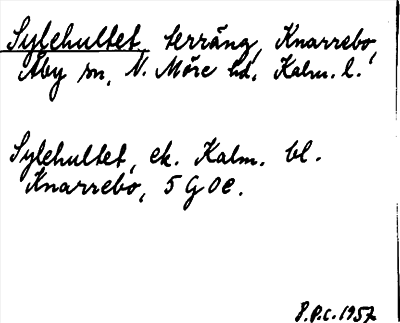 Sylehultet, terräng, Knarrebo,
Åby sn, N. Möre hd. Kalm. l.
Sylehultet, ek. Kalm. bl.
Knarrebo, 5 G 0 e.
P.P.C. 1957